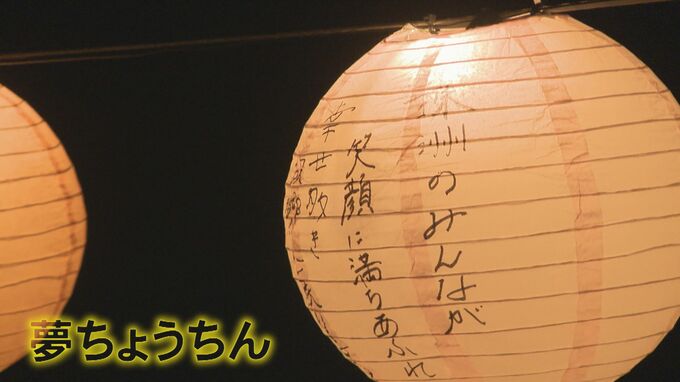 珠洲のみんなが
笑顔に満ちあふれ
幸せ
夢ちょうちん